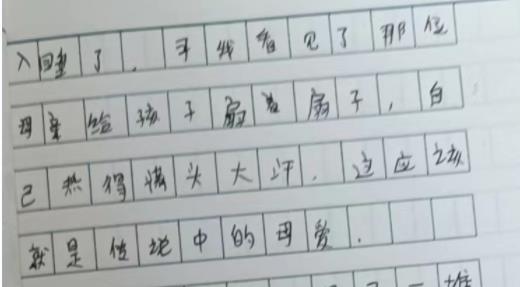 入睡了，我看见了那位
母亲给孩子扇着扇子，自
己热得满头大汗，这应该
就是传说中的母爱.
一堆